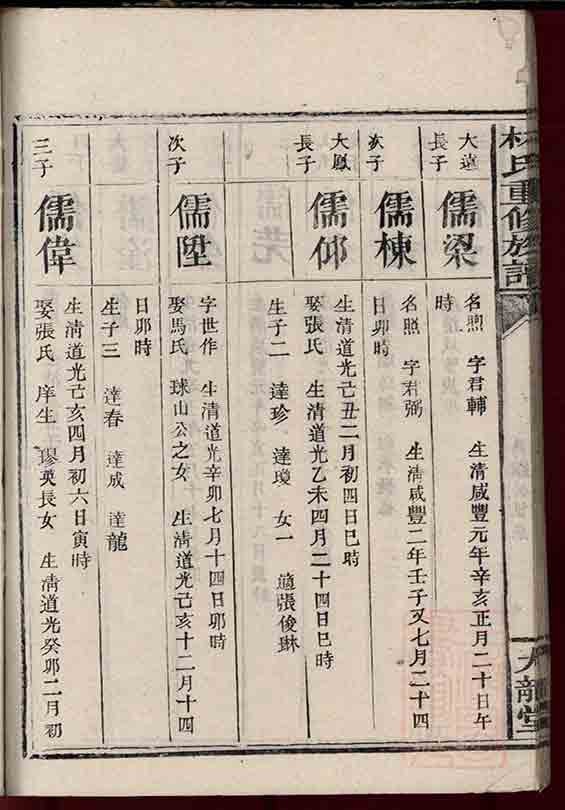 林氏重修族譜
九龍堂
大遠長子
儒梁
名煦 字君輔 生清咸豐元年辛亥正月二十日午
時
次子
儒棟
名照 字君弼 生清咸豐二年壬子又七月二十四
日卯時
大鳳長子
儒仰
生清道光己丑二月初四日巳時
娶張氏 生清道光乙未四月二十四日巳時
生子二 達珍 達瓊 女一 適張俊琳
次子
儒陞
字世作 生清道光辛卯七月十四日卯時
娶馬氏 球山公之女 生清道光己亥十二月十四
日卯時
生子三 達春 達成 達龍
三子
儒偉
生清道光己亥四月初六日寅時
娶張氏 庠生 璆英長女 生清道光癸卯二月初